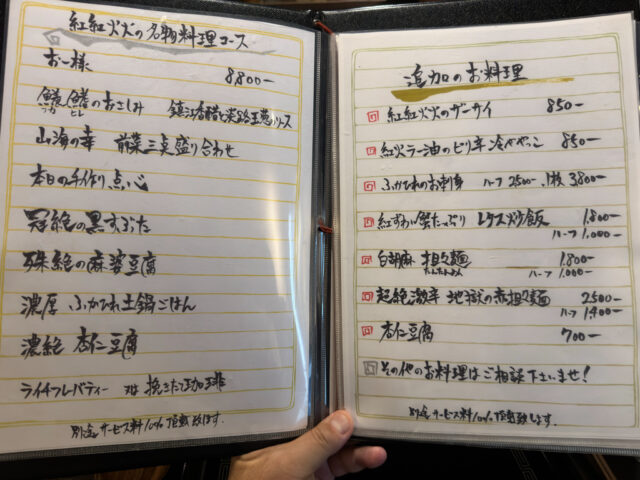 紅紅火火の名物料理コース
お一様 8,800-
鱶鰭のおさしみ 鎮江香醋と淡路玉葱ソース
ふか ヒレ
山海の幸 前菜三点盛り合わせ
本日の手作り点心
冠絶の黒すぶた
殊絶の麻婆豆腐
濃厚 ふかひれ土鍋ごはん
濃絶 杏仁豆腐
ライチフレバティー 又は 挽きたて珈琲
別途サービス料10%頂戴致します。
追加のお料理
紅紅火火のザーサイ 850-
紅火ラー油のピリ辛冷ややっこ 850-
ふかひれのお刺身 ハーフ 2500- 1枚 3,800-
紅ずわい蟹たっぷり レタス炒飯 1,800-
ハーフ 1,000-
白胡麻 担々麺 1,800-
たんたんめん ハーフ 1,000-
超絶激辛 地獄の赤担々麺 2500-
ハーフ 1,400-
杏仁豆腐 700-
その他のお料理はご相談下さいませ!
別途サービス料10%頂戴致します。